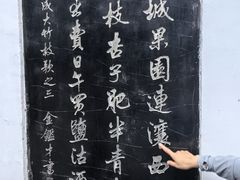 城果園連瀼西
枝杏子肥半青
生費日午買鹽沽酒
成大竹枝歌之三 金鑑才書